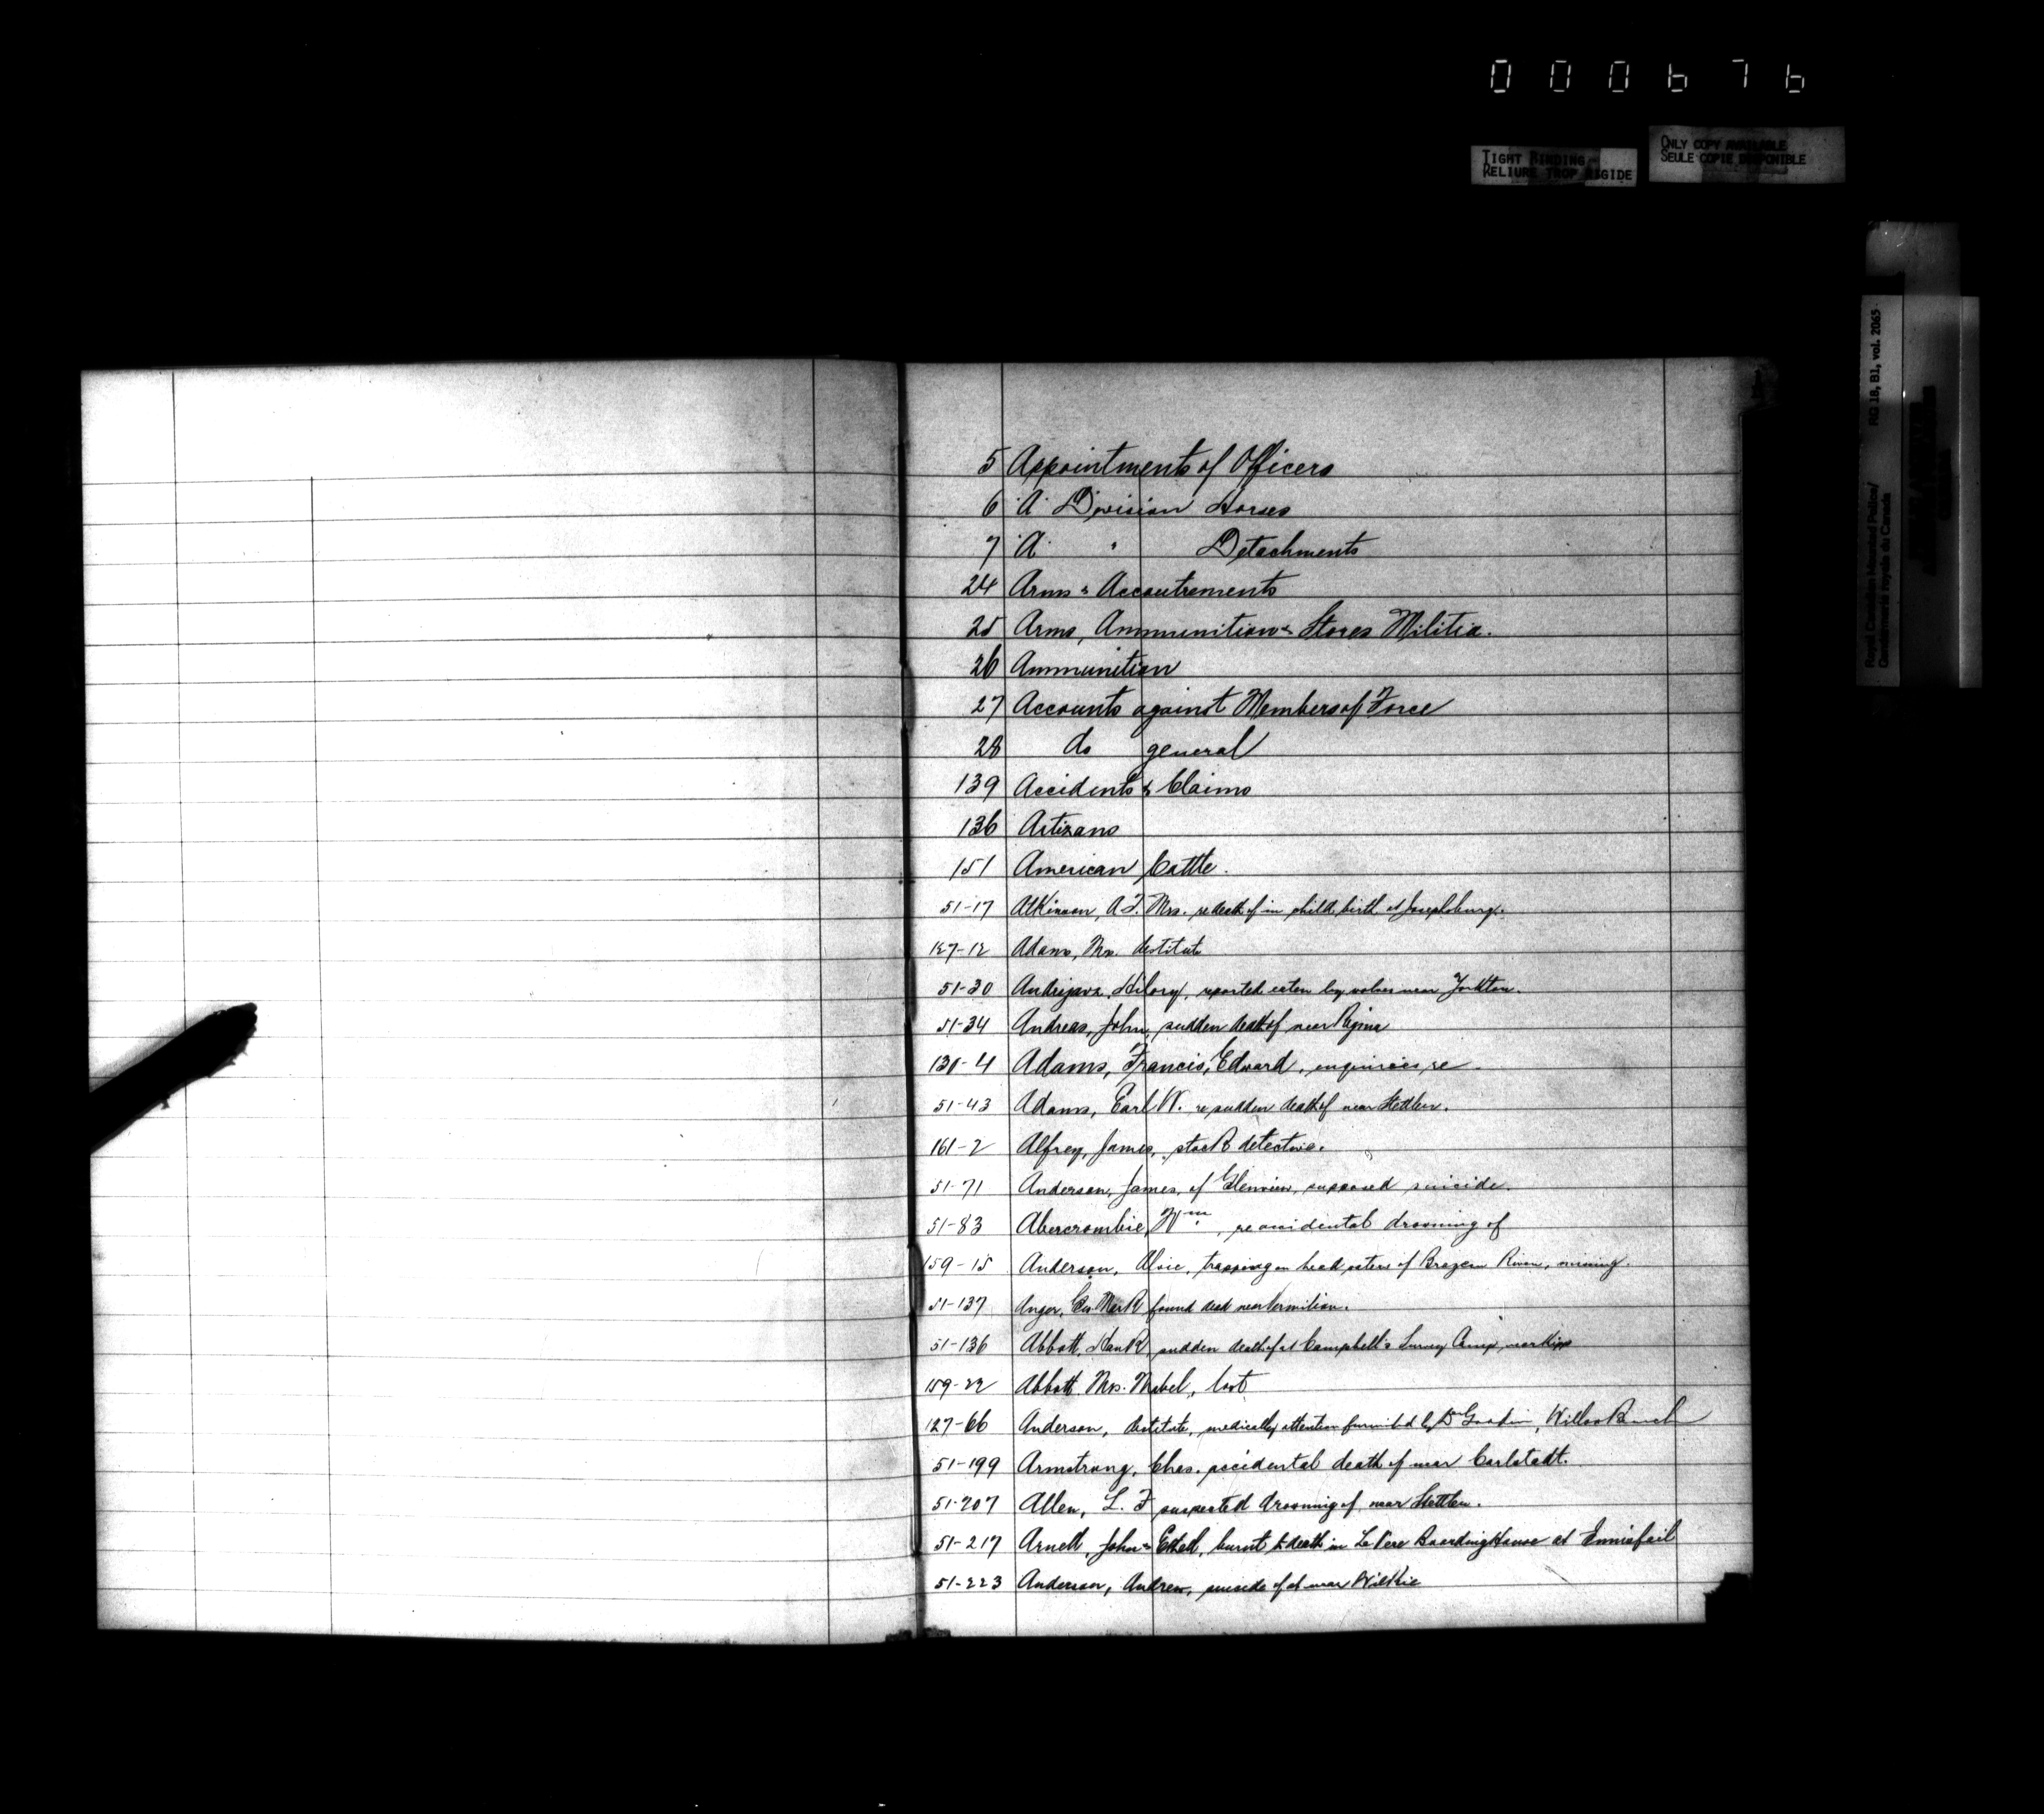 000676
TIGHT BINDING
RELIURE TROP RIGIDE
ONLY COPY AVAILABLE
SEULE COPIE DISPONIBLE
Royal Canadian Mounted Police/ RG 18, B1, vol. 2065
Gendarmerie royale du Canada
5 Appointments of Officers
6 "A" Division Horses
7 "A" " Detachments
24 Arms & Accoutrements
25 Arms, Ammunition & Stores Militia.
26 Ammunition
27 Accounts against Members of Force
28 do general
139 Accidents & Claims
136 Artizans
151 American Cattle.
51-17 Atkinson, A.F. Mrs. re death of in child birth at Josephsburg.
127-12 Adams, Mrs. destitute
51-30 Hilory, reported eaten by wolves near Yorkton.
51-34 Andreas, John, sudden death of near Regina
130-4 Adams, Francis, Edward, enquiries re.
51-43 Adams, Earl W. re sudden death of near Stettler.
161-2 Alfrey, James, stock detective.
51-71 Anderson, James, of Glenview, supposed suicide.
51-83 Abercrombie, Wm, re accidental drowning of
159-15 Anderson, trapping on head waters of Brazeau River, missing.
51-137 Anger, found dead near Vermilion.
51-136 Abbott, Hank, sudden death of at Campbell's Survey Camp, near Kipp
159-22 Abbott Mrs. Mabel, lost
127-66 Anderson, destitute, medically attention furnished by Dr Willow Bunch
51-199 Armstrong, Chas. accidental death of near Carlstadt.
51-207 Allen, L. F suspected drowning of near Stettler.
51-217 Arnell, John & Ethel, burnt to death in Le Pere Boarding House at Innisfail
51-223 Anderson, Andrew, suicide of at near Wilkie